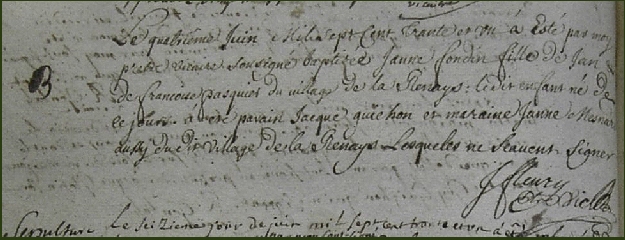 vicaire
Le quatrième Juin Mil sept Cent trante et un a Este par moy
prestre vicaire sousigné baptizée Janne Condin fille de Jan
B
de francoise pasquier du village de la Renays : Ledit enfant né de
ce jour a eté parain Jacque guichon et maraine Janne Mesnar
aussy du dit village de la Renays Lesquels ne scavent Signer
J fleury
Sepulture Le seizieme jour de juin mil sept cent trante et un a été